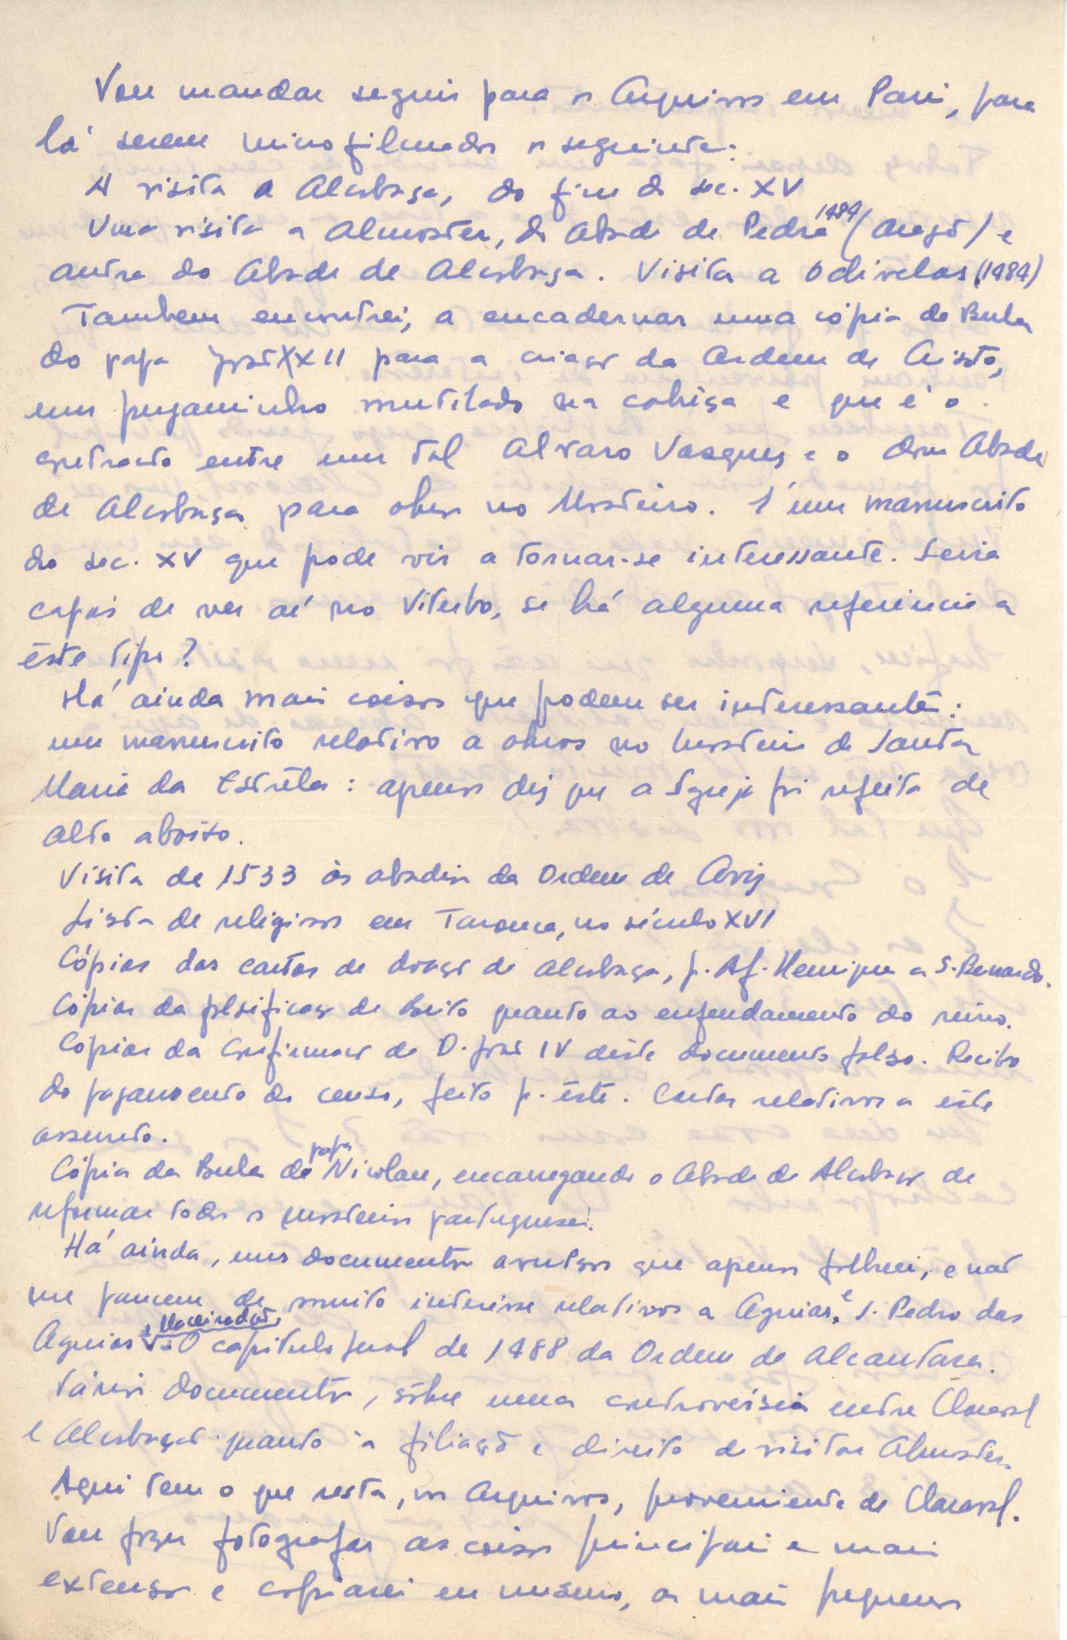 Vou mandar seguir para os Arquivos em Paris, para
lá serem microfilmados o seguinte:
A visita a Alcobaça, do fim do sec. XV
Uma visita a Almoster, do Abade de Pedra 1484 (Aragão) e
outra do Abade de Alcobaça. Visita a Odivelas (1484)
Tambem encontrei, a encadernar uma cópia da Bula
do papa João XXII para a criação da Ordem de Cristo,
um pergaminho mutilado na cabeça e que é o
contracto entre um tal Alvaro Vasques e o dom Abade
de Alcobaça para obras no Mosteiro. É um manuscrito
do sec. XV que pode vir a tornar-se interessante. Seria
capás de ver aí no Viterbo, se há alguma referencia a
êste tipo?
Há ainda mais coisas que podem ser interessantes:
um manuscrito relativo a obras no mosteiro de Santa
Maria da Estrêla: apenas diz que a Igreja foi refeita de
alto abaixo.
Visita de 1533 às abadias da Ordem de Aviz
Lista de religiosos em Tarouca, no século XVI
Cópias das cartas de doação de Alcobaça, p. Af. Henriques a S. Bernardo.
Cópias da falsificação de Brito quanto ao enfeudamento do reino.
Cópias da Confirmação de D. João IV dêste documento falso. Recibo
do pagamento do censo, feito p. êste. Cartas relativas a êste
assunto.
Cópia da Bula do papa Nicolau, encarregando o Abade de Alcobaça de
reformar todos os mosteiros portugueses.
Há ainda, uns documentos avulsos que apenas folheei, e não
me parecem de muito interesse relativos a Aguiar, e S. Pedro das
Aguias e Maceiradão. O capitulo geral de 1488 da Ordem de Alcantara.
Vários documentos, sôbre uma controvérsia entre Claraval
e Alcobaça quanto à filiação e direito de visitar Almoster.
Aqui tem o que resta, nos Arquivos, proveniente de Claraval.
Vou fazer fotografar as coisas principais e mais
extensas e copiarei eu mesmo, as mais pequenas